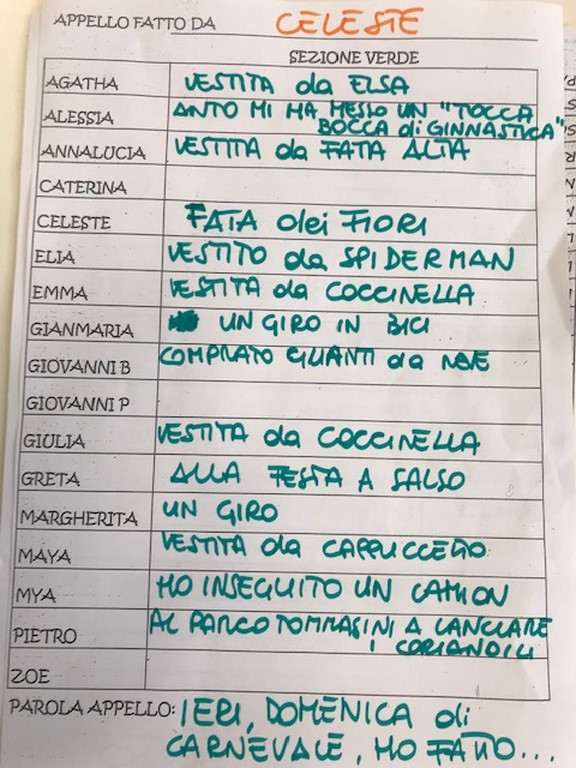 APPELLO FATTO DA CELESTE
SEZIONE VERDE
AGATHA VESTITA da ELSA
ALESSIA ANTO MI HA MESSO UN "TOCCA
BOCCA di GINNASTICA"
ANNALUCIA VESTITA da FATA ALTA
CATERINA
CELESTE FATA dei FIORI
ELIA VESTITO da SPIDERMAN
EMMA VESTITA da COCCINELLA
GIANMARIA UN GIRO IN BICI
GIOVANNI B COMPRATO GUANTI da NEVE
GIOVANNI P
GIULIA VESTITA da COCCINELLA
GRETA ALLA FESTA A SALSO
MARGHERITA UN GIRO
MAYA VESTITA da CAPPUCCETTO
MYA HO INSEGUITO UN CAMION
PIETRO AL PARCO TOMMASINI A LANCIARE
I CORIANDOLI
ZOE
PAROLA APPELLO: IERI, DOMENICA di
CARNEVALE, HO FATTO...